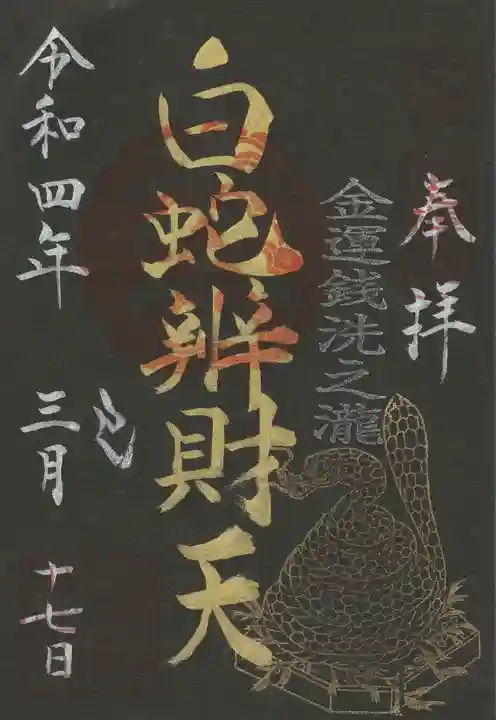 奉拝
金運銭洗之瀧
白蛇辨財天
令和四年 三月 十七日